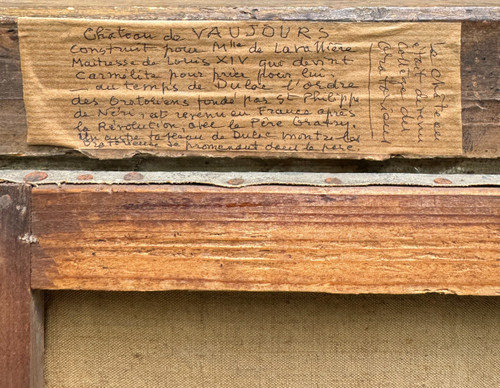 Chateau de VAUJOURS
construit pour Mlle de Lavallière
Maitresse de Louis XIV que devint
Carmélite pour prier pour lui.
— au temps de Dulac l'ordre
des Oratoriens fondé par St Philippe
de Néri est revenu en France après
la Révolution avec le Père Gratry.
Un autre tableau de Dulac montre les
oratoriens se promenant dans le parc
Le château
était devenu
Collège des
Oratoriens